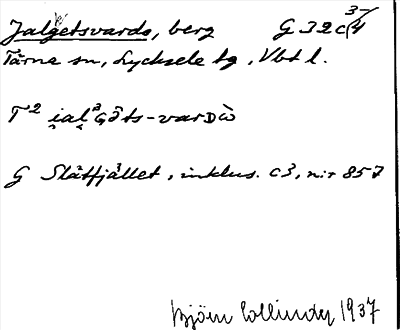 Jalgetsvardo, berg G 32 c 3-4
Tärna sn, Lycksele lg, Vbt l.
T² i̯al̥ᵊGōts-varDὼ
G Slätfjället, inklus. c3, n:r 857
Björn Collinder 1937